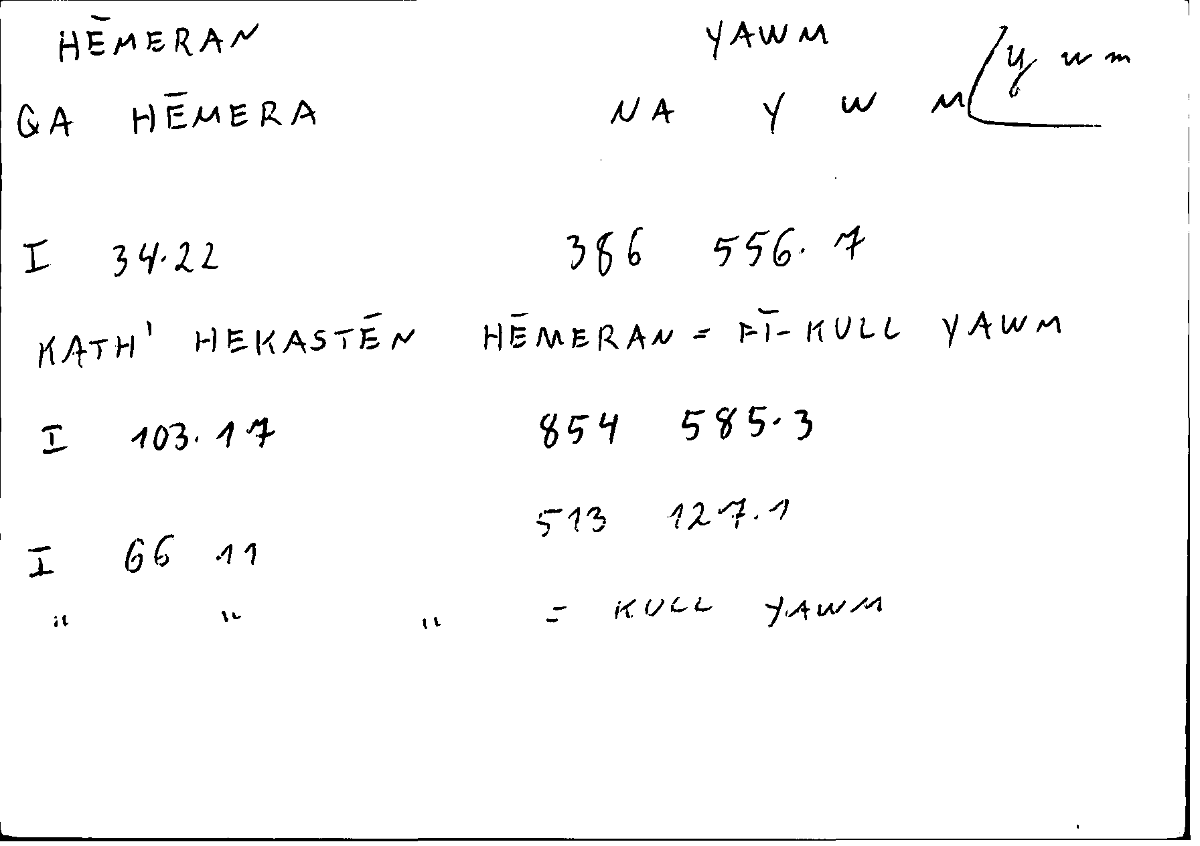 HĒMERAN YAWM
GA HĒMERA NA Y W M y w m
I 34.22 386 556.7
KATH' HEKASTĒN HĒMERAN = FĪ-KULL YAWM
I 103.17 854 585.3
513 127.1
I 66 11
" " " = KULL YAWM